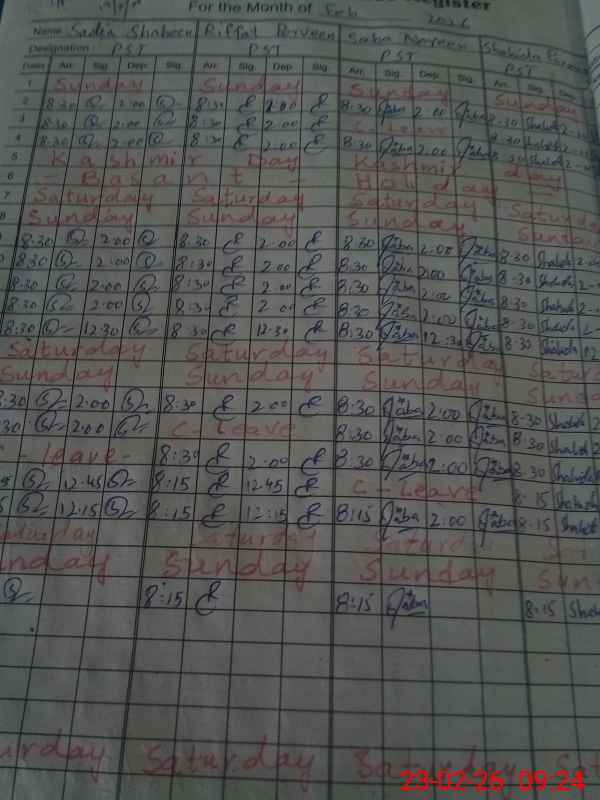 Register
For the Month of Feb 2026
Name Sadia Shaheen Riffat Perveen Saba Shahida
Designation: PST PST PST PST
Date Arr. Sig. Dep. Sig. Arr. Sig. Dep. Sig. Arr. Sig. Dep. Sig. Arr. Sig. Dep.
1 Sunday Sunday Sunday Sunday
2 8:30 2:00 8:30 2:00 8:30 Saba 2:00 Saba 8:30 Shahida
3 8:30 2:00 8:30 2:00 C-Leave 8:30 Shahida
4 8:30 2:00 8:30 2:00 8:30 Saba 2:00 Saba 8:30 Shahida
5 Kashmir Day Kashmir day
6 - Basant - Holiday -
7 Saturday Saturday Saturday Saturday
8 Sunday Sunday Sunday Sunday
8:30 2:00 8:30 2:00 8:30 Saba 2:00 Saba 8:30 Shahida
8:30 2:00 8:30 2:00 8:30 Saba 2:00 Saba 8:30 Shahida
8:30 2:00 8:30 2:00 8:30 Saba 2:00 Saba 8:30 Shahida
8:30 2:00 8:30 2:00 8:30 Saba 2:00 Saba 8:30 Shahida
8:30 12:30 8:30 12:30 8:30 Saba 12:30 Saba 8:30 Shahida 12
Saturday Saturday Saturday Satur
Sunday Sunday Sunday Sunda
:30 2:00 8:30 2:00 8:30 Saba 2:00 Saba 8:30 Shahida
30 2:00 C-Leave 8:30 Saba 2:00 Saba 8:30 Shahida
- leave - 8:30 2:00 8:30 Saba 2:00 Saba 8:30 Shahida
12:45 8:15 12:45 C-Leave 8:15 Shahida
12:15 8:15 12:15 8:15 Saba 2:00 Saba 8:15 Shahida
aturday Saturday Saturd Sat
nday Sunday Sunday Sun
8:15 8:15 Saba 8:15 Sha
urday Saturday Saturday Sat
23-02-26 09:24